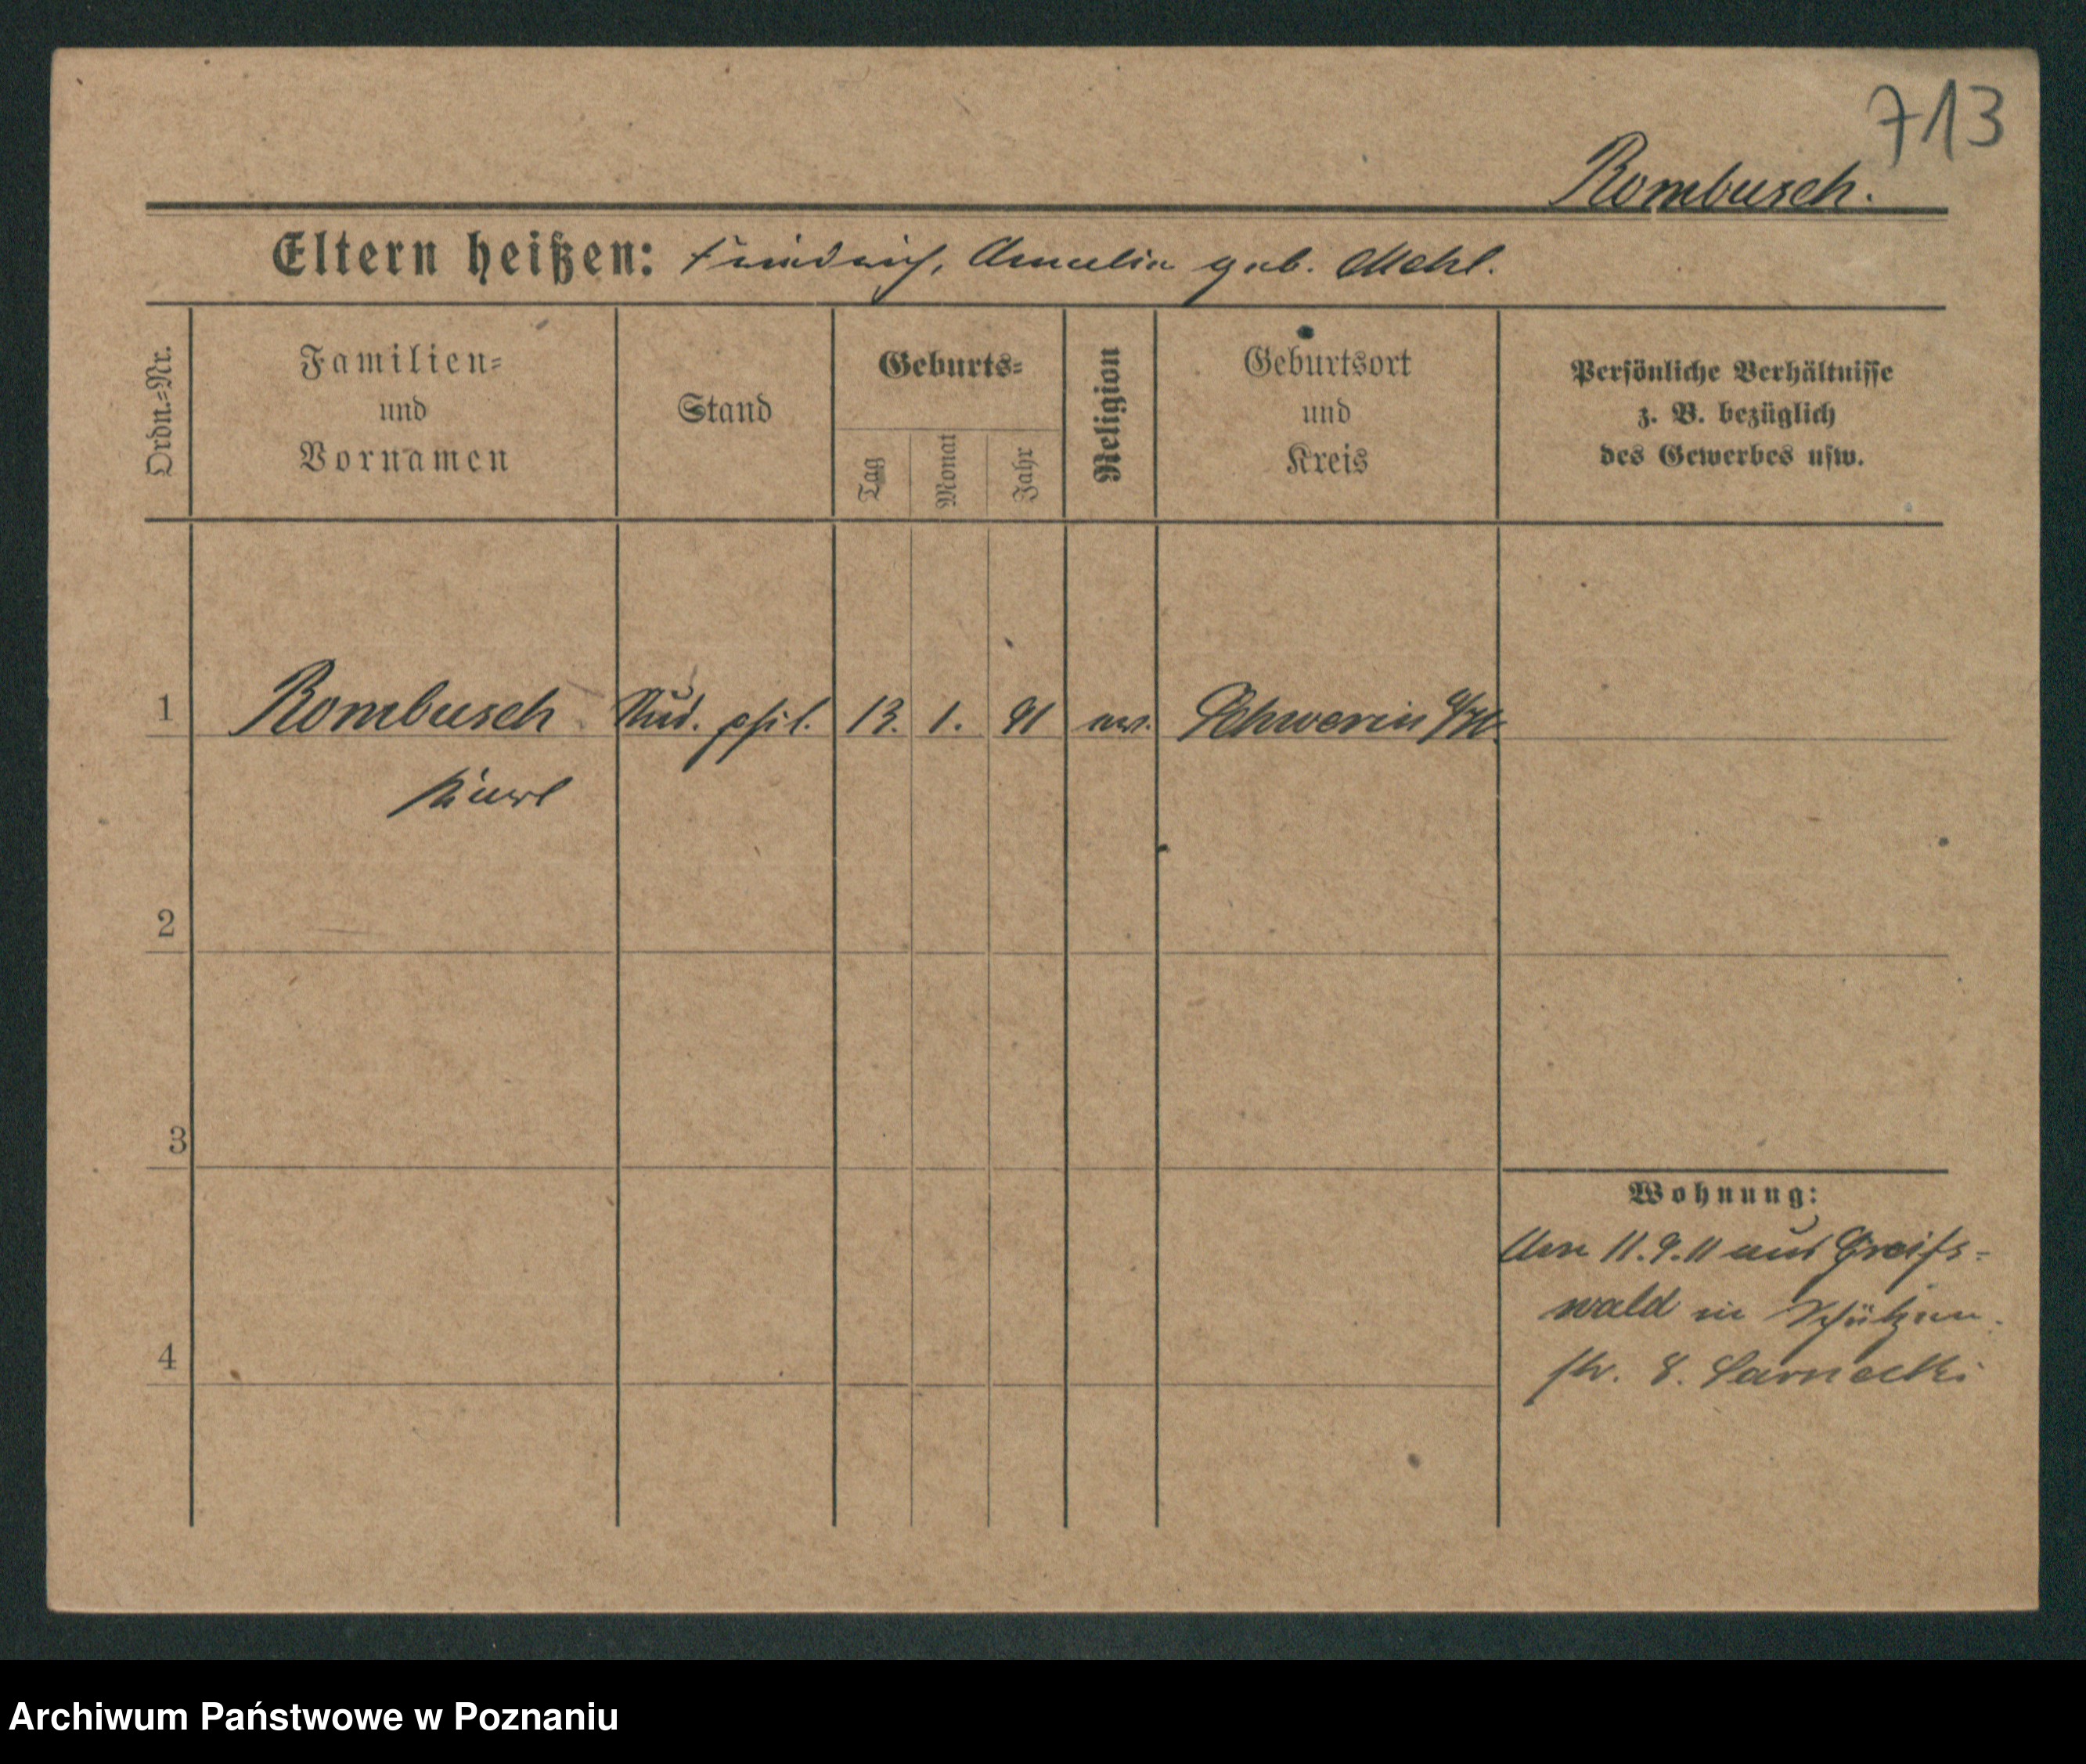 713
Rombusch.
Eltern heißen: Friedrich, Amalie geb. Mehl.
Ordn.-Nr.
Familien- und Vornamen
Stand
Geburts-
Tag
Monat
Jahr
Religion
Geburtsort und Kreis
Persönliche Verhältnisse
z. B. bezüglich
des Gewerbes usw.
1 Rombusch Stud. phil. 13. 1. 91 ev. Schwerin a/W.
2
3
4
Wohnung:
Am 11.9.11 aus Greifs-
wald in Schützen-
str. 8. Sarnecki
Archiwum Państwowe w Poznaniu